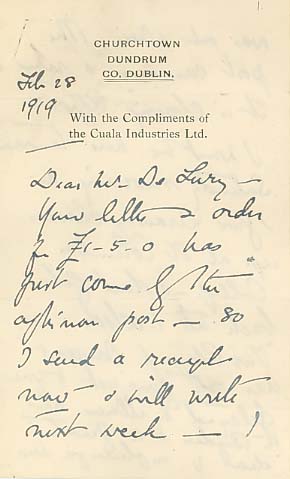 CHURCHTOWN
DUNDRUM
CO. DUBLIN.
Feb 28
1919
With the Compliments of
the Cuala Industries Ltd.
Dear Mr De Lury —
Your letter & order
for £1-5-0 has
just come by the
afternoon post — so
I send a receipt
now & will write
next week — I